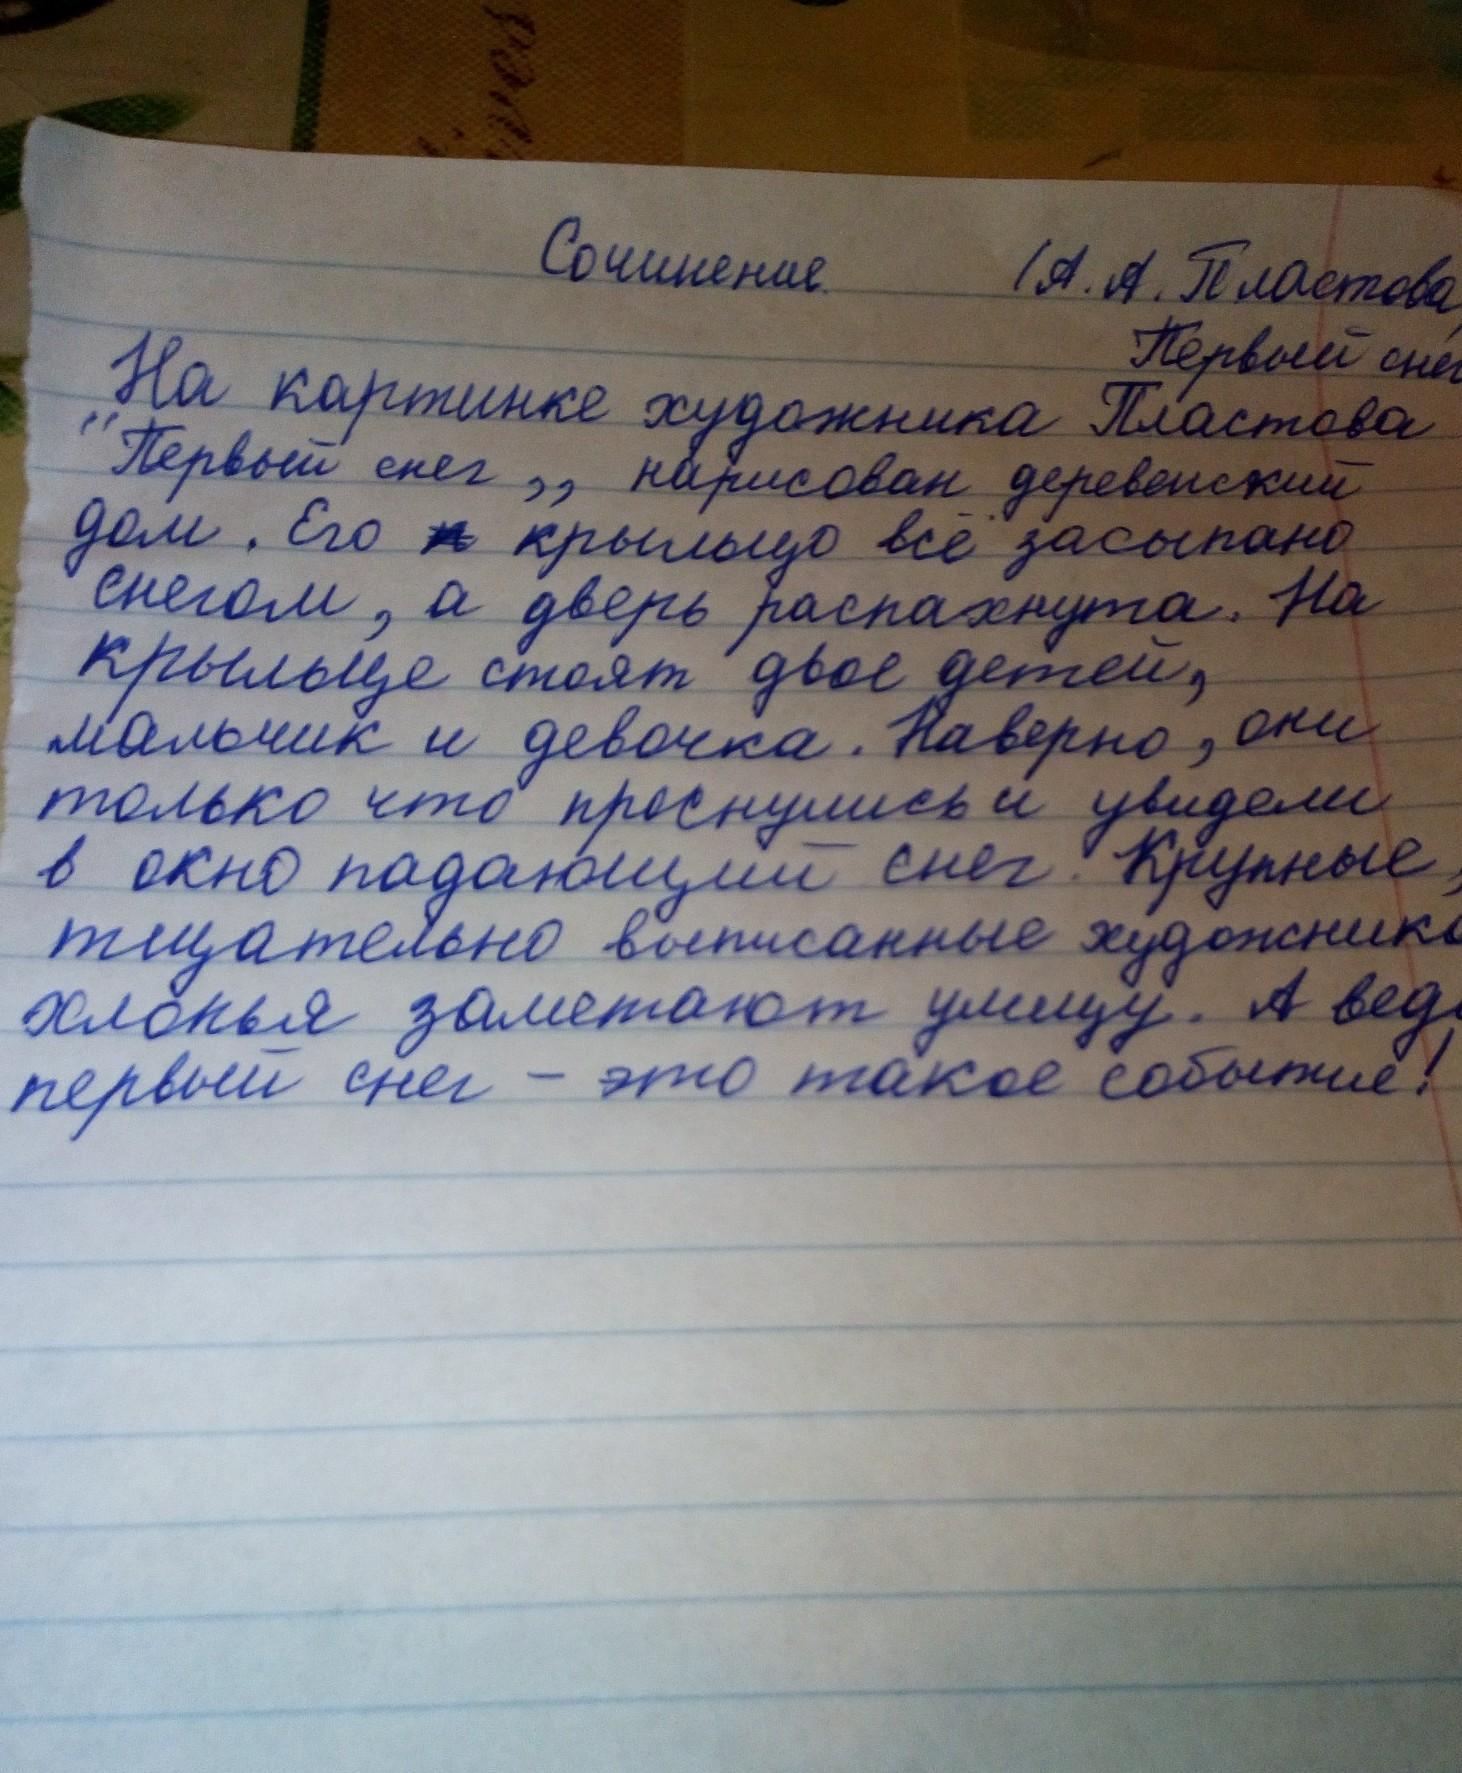 Сочинение. (А. А. Пластова,
Первый снег
На картинке художника Пластова
"Первый снег,, нарисован деревенский
дом. Его крыльцо всё засыпано
снегом, а дверь распахнута. На
крыльце стоят двое детей,
мальчик и девочка. Наверно, они
только что проснулись и увидели
в окно падающий снег. Крупные,
тщательно выписанные художнико
хлопья заметают улицу. А ведь
первый снег – это такое событие!